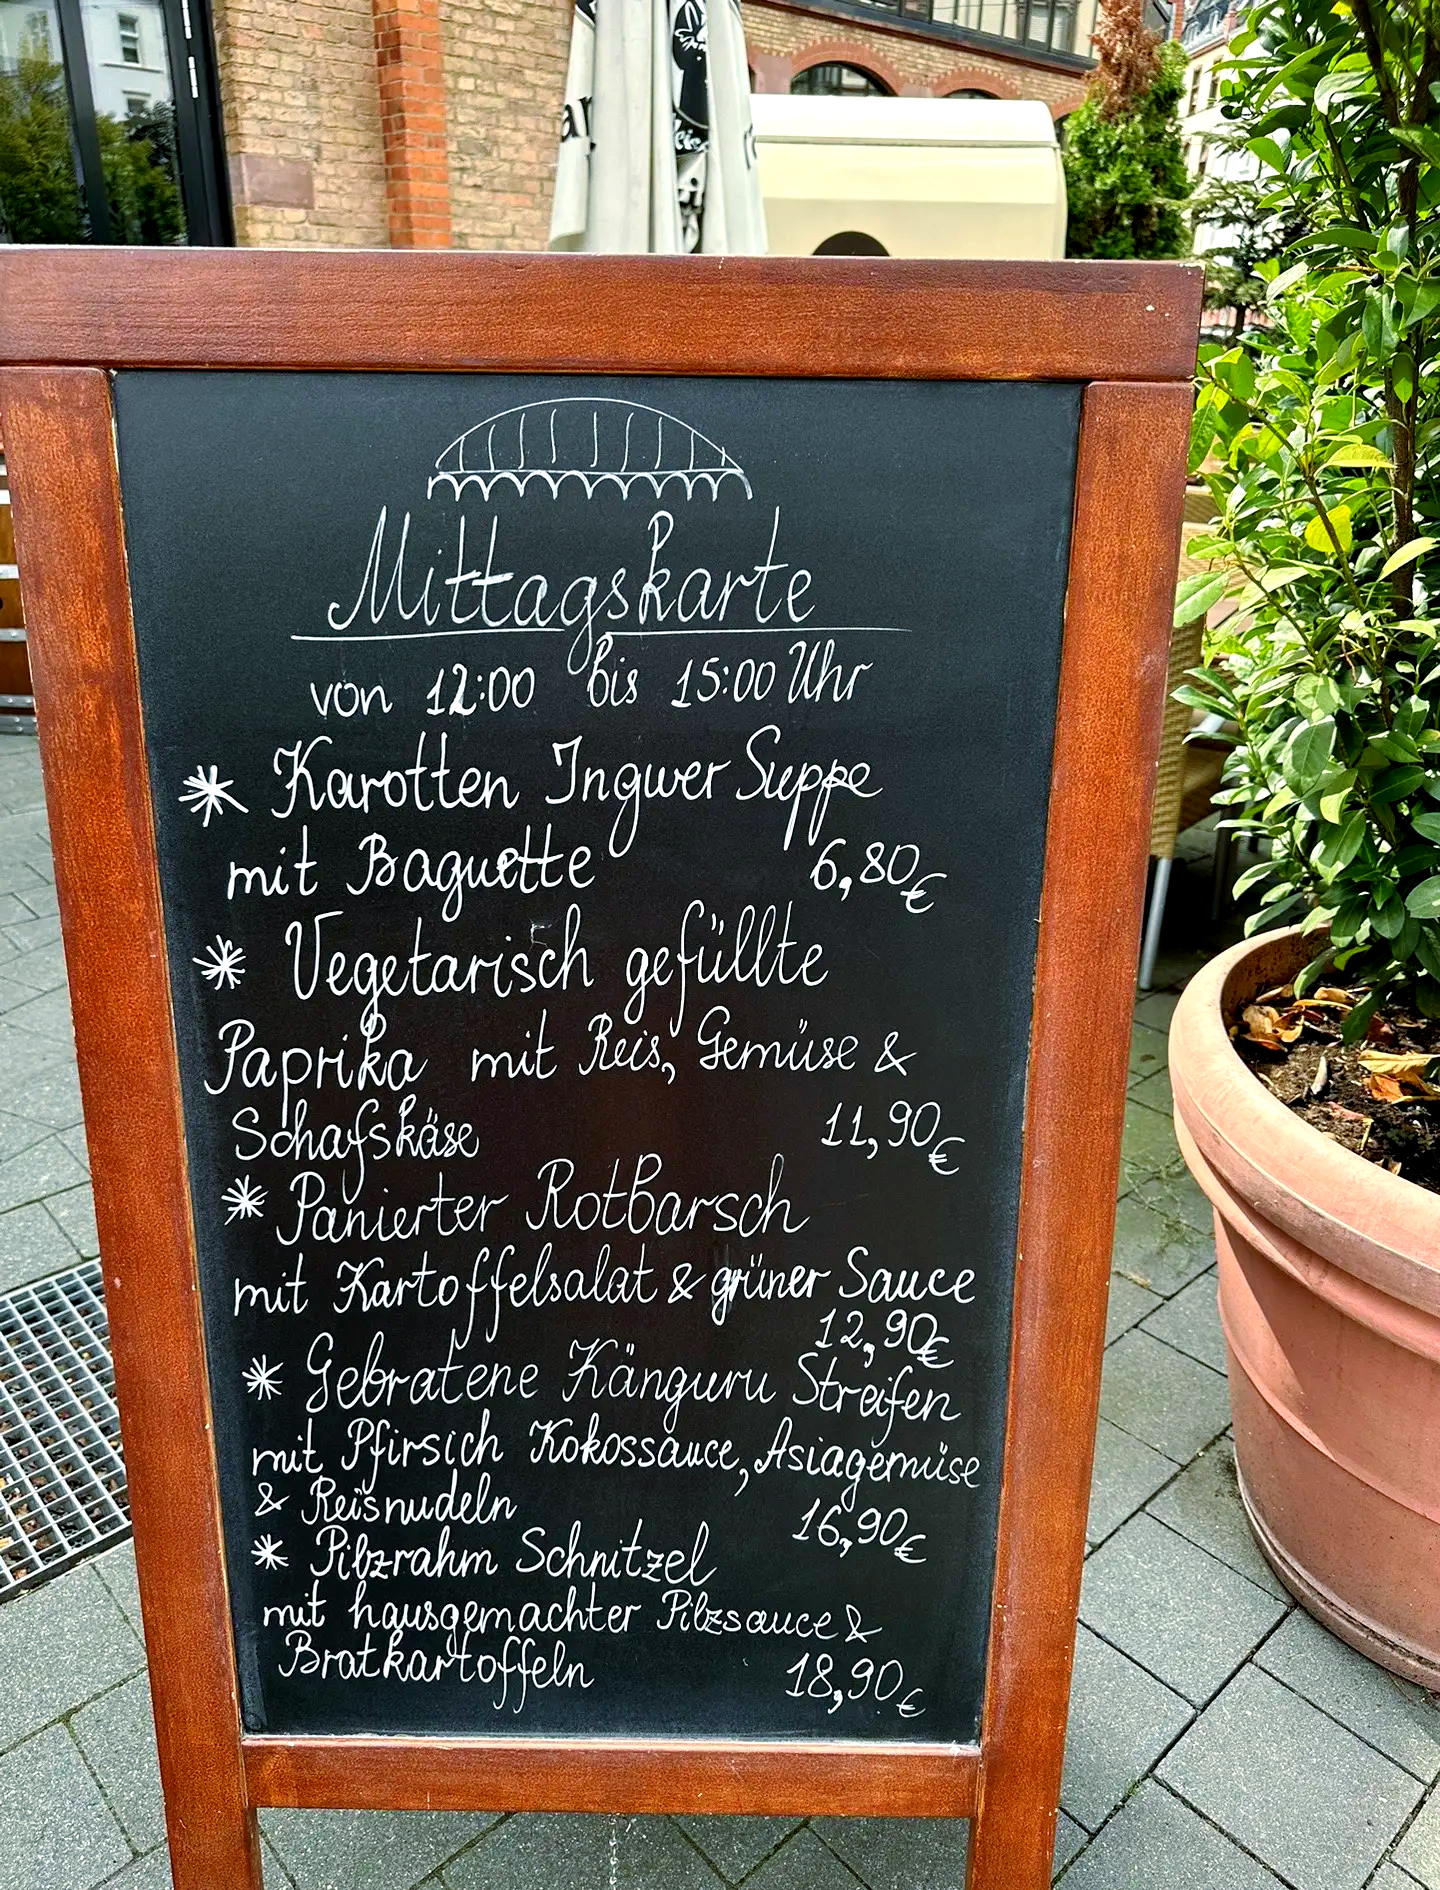 Mittagskarte
von 12:00 bis 15:00 Uhr
* Karotten Ingwer Suppe
mit Baguette 6,80€
* Vegetarisch gefüllte
Paprika mit Reis, Gemüse &
Schafskäse 11,90€
* Panierter Rotbarsch
mit Kartoffelsalat & grüner Sauce
12,90€
* Gebratene Känguru Streifen
mit Pfirsich Kokossauce, Asiagemüse
& Reisnudeln 16,90€
* Pilzrahm Schnitzel
mit hausgemachter Pilzsauce &
Bratkartoffeln 18,90€